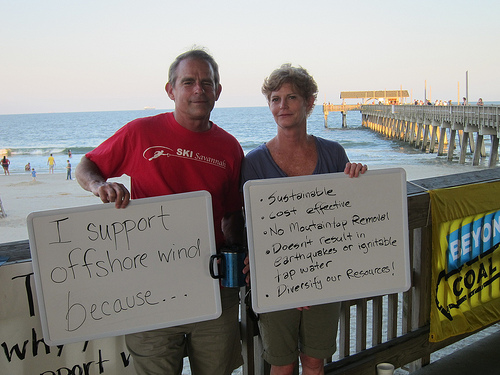 SKI Savannah
I support
offshore wind
because...
• Sustainable
• Cost effective
• No Mountaintop Removal
• Doesn't result in
earthquakes or ignitable
tap water
• Diversify our Resources!
BEYON
COAL
why